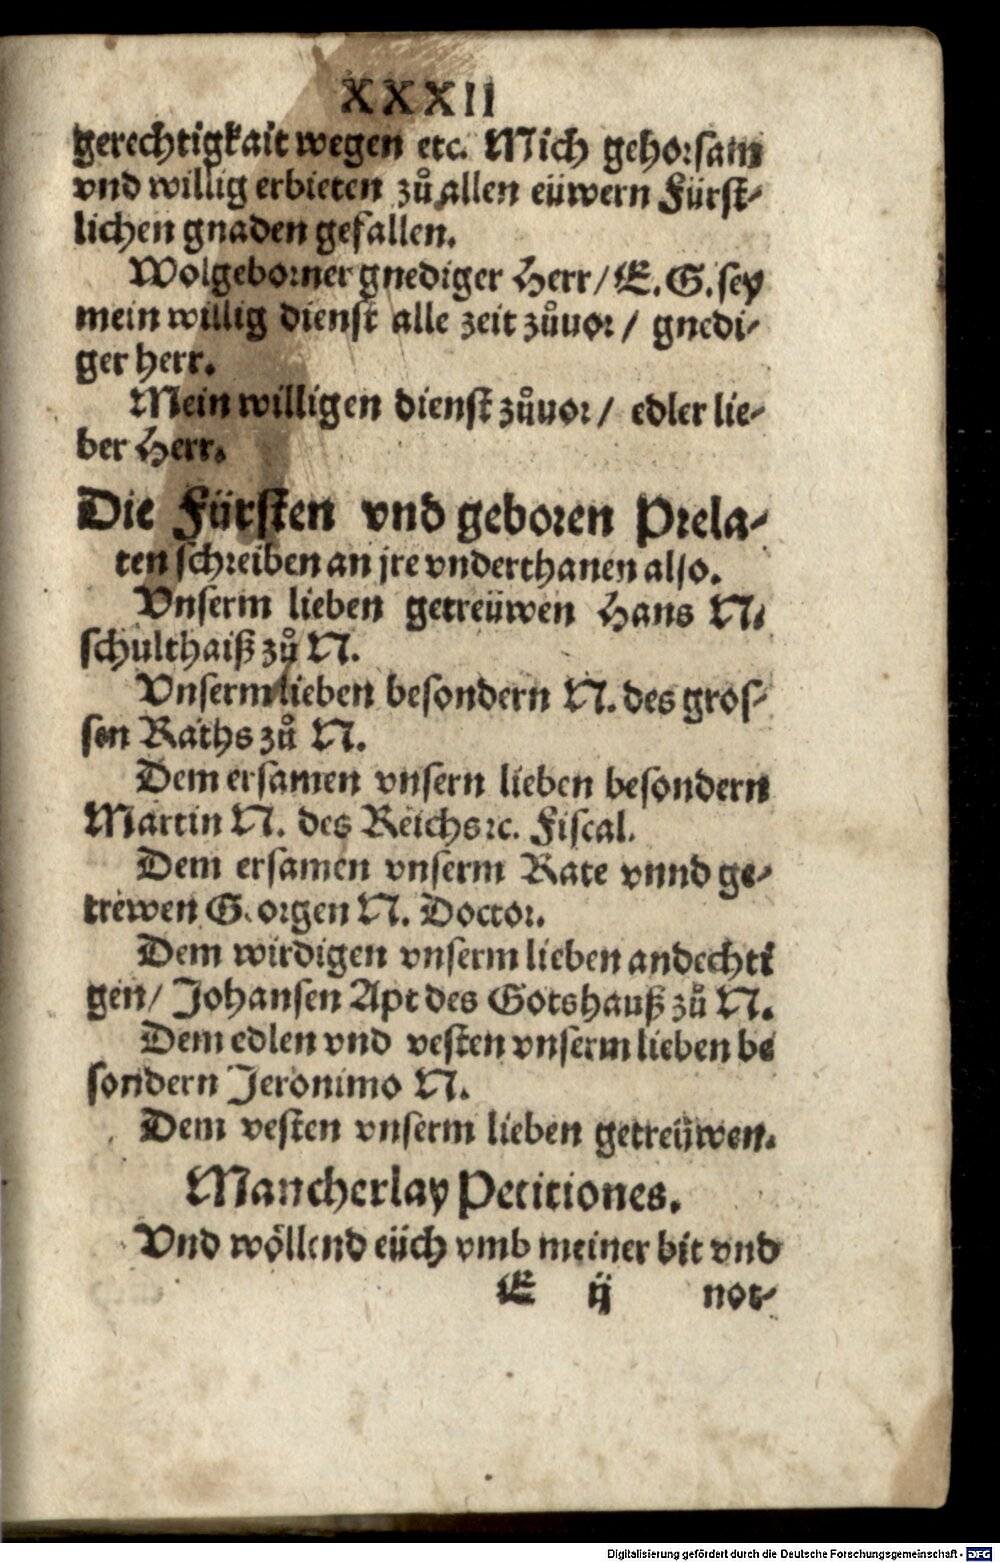 XXXII
gerechtigkait wegen etc. Mich gehorsam
vnd willig erbieten zů allen eüwern Fürst-
lichen gnaden gefallen.
Wolgeborner gnediger Herr/ E. G. sey
mein willig dienst alle zeit zůuor/ gnedi-
ger herr.
Mein willigen dienst zůuor/ edler lie-
ber Herr.
Die Fürsten vnd geboren Prela-
ten schreiben an jre vnderthanen also.
Vnserm lieben getreüwen Hans N.
schulthaiß zů N.
Vnserm lieben besondern N. des gros-
sen Raths zů N.
Dem ersamen vnsern lieben besondern
Martin N. des Reichs ꝛc. Fiscal.
Dem ersamen vnserm Rate vnnd ge-
trewen Georgen N. Doctor.
Dem wirdigen vnserm lieben andechti
gen/ Johansen Apt des Gotshauß zů N.
Dem edlen vnd vesten vnserm lieben be
sondern Jeronimo N.
Dem vesten vnserm lieben getreüwen.
Mancherlay Petitiones.
Vnd wöllend eüch vmb meiner bit vnd
E ij not-
Digitalisierung gefördert durch die Deutsche Forschungsgemeinschaft - DFG